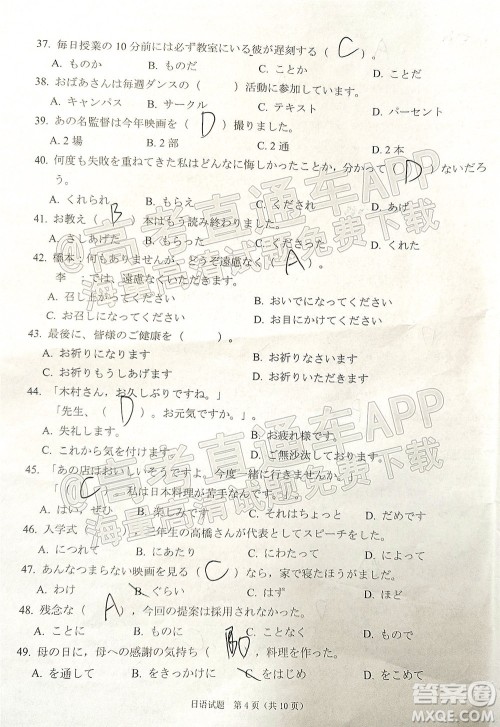 37. 毎日授業の10分前には必ず教室にいる彼が遅刻する（ C ）。
A. ものか B. ものだ C. ことか D. ことだ
38. おばあさんは毎週ダンスの（ ）活動に参加しています。
A. キャンパス B. サークル C. テキスト D. パーセント
39. あの名監督は今年映画を（ D ）撮りました。
A. 2場 B. 2回 C. 2通 D. 2本
40. 何度も失敗を重ねてきた私はどんなに悔しかったことか、分かって（ D ）ないだろ
う。
A. くれられ B. もらえ C. くだされ D. あげ
41. お教え（ B 本はもう読み終わりました。
A. さしあげた B. もらった D. くれた
42. 橋本：何もありませんが、どうぞ遠慮なく（ A ）。
李 ：では、遠慮なくいただきます。
A. 召し上がってください B. おいでになってください
D. お目にかけてください
43. 最後に、皆様のご健康を（ ）。
A. お祈りになります
C. お祈りもうしあげます D. お祈りいたします
44. 「木村さん、お久しぶりですね。」
「先生、（ D ）。お元気ですか。」
A. 失礼します。 B. お疲れ様です。
C. これから気を付けます。 D. ご無沙汰しております。
45. 「あの店はおいしいそうですよ。今度一緒に行きませんか。」
「（ C ）、私は日本料理が苦手なんです。」
A. はい、ぜひ B. 楽しみです C. ちょっと D. だめです
46. 入学式（ 年生の高橋さんが代表としてスピーチをした。
A. につれて B. にあたり C. にわたって D. にとって
47. あんなつまらない映画を見る（ C ）なら、家で寝たほうがいい。
A. わけ B. ぐらい C. はず D. ほど
48. 残念な（ A ）、今回の提案は採用されなかった。
A. ことに B. ものに C. ことなく D. もので
49. 母の日に、母への感謝の気持ち（ D ）、料理を作った。
A. を通して B. をきっかけに C. をはじめ D. をこめて
日语试题 第4页（共10页）
@高考直通车APP
海量高清试题免费下载
@高考直通车APP
海量高清试题免费下载
答案圈
MXQE.COM